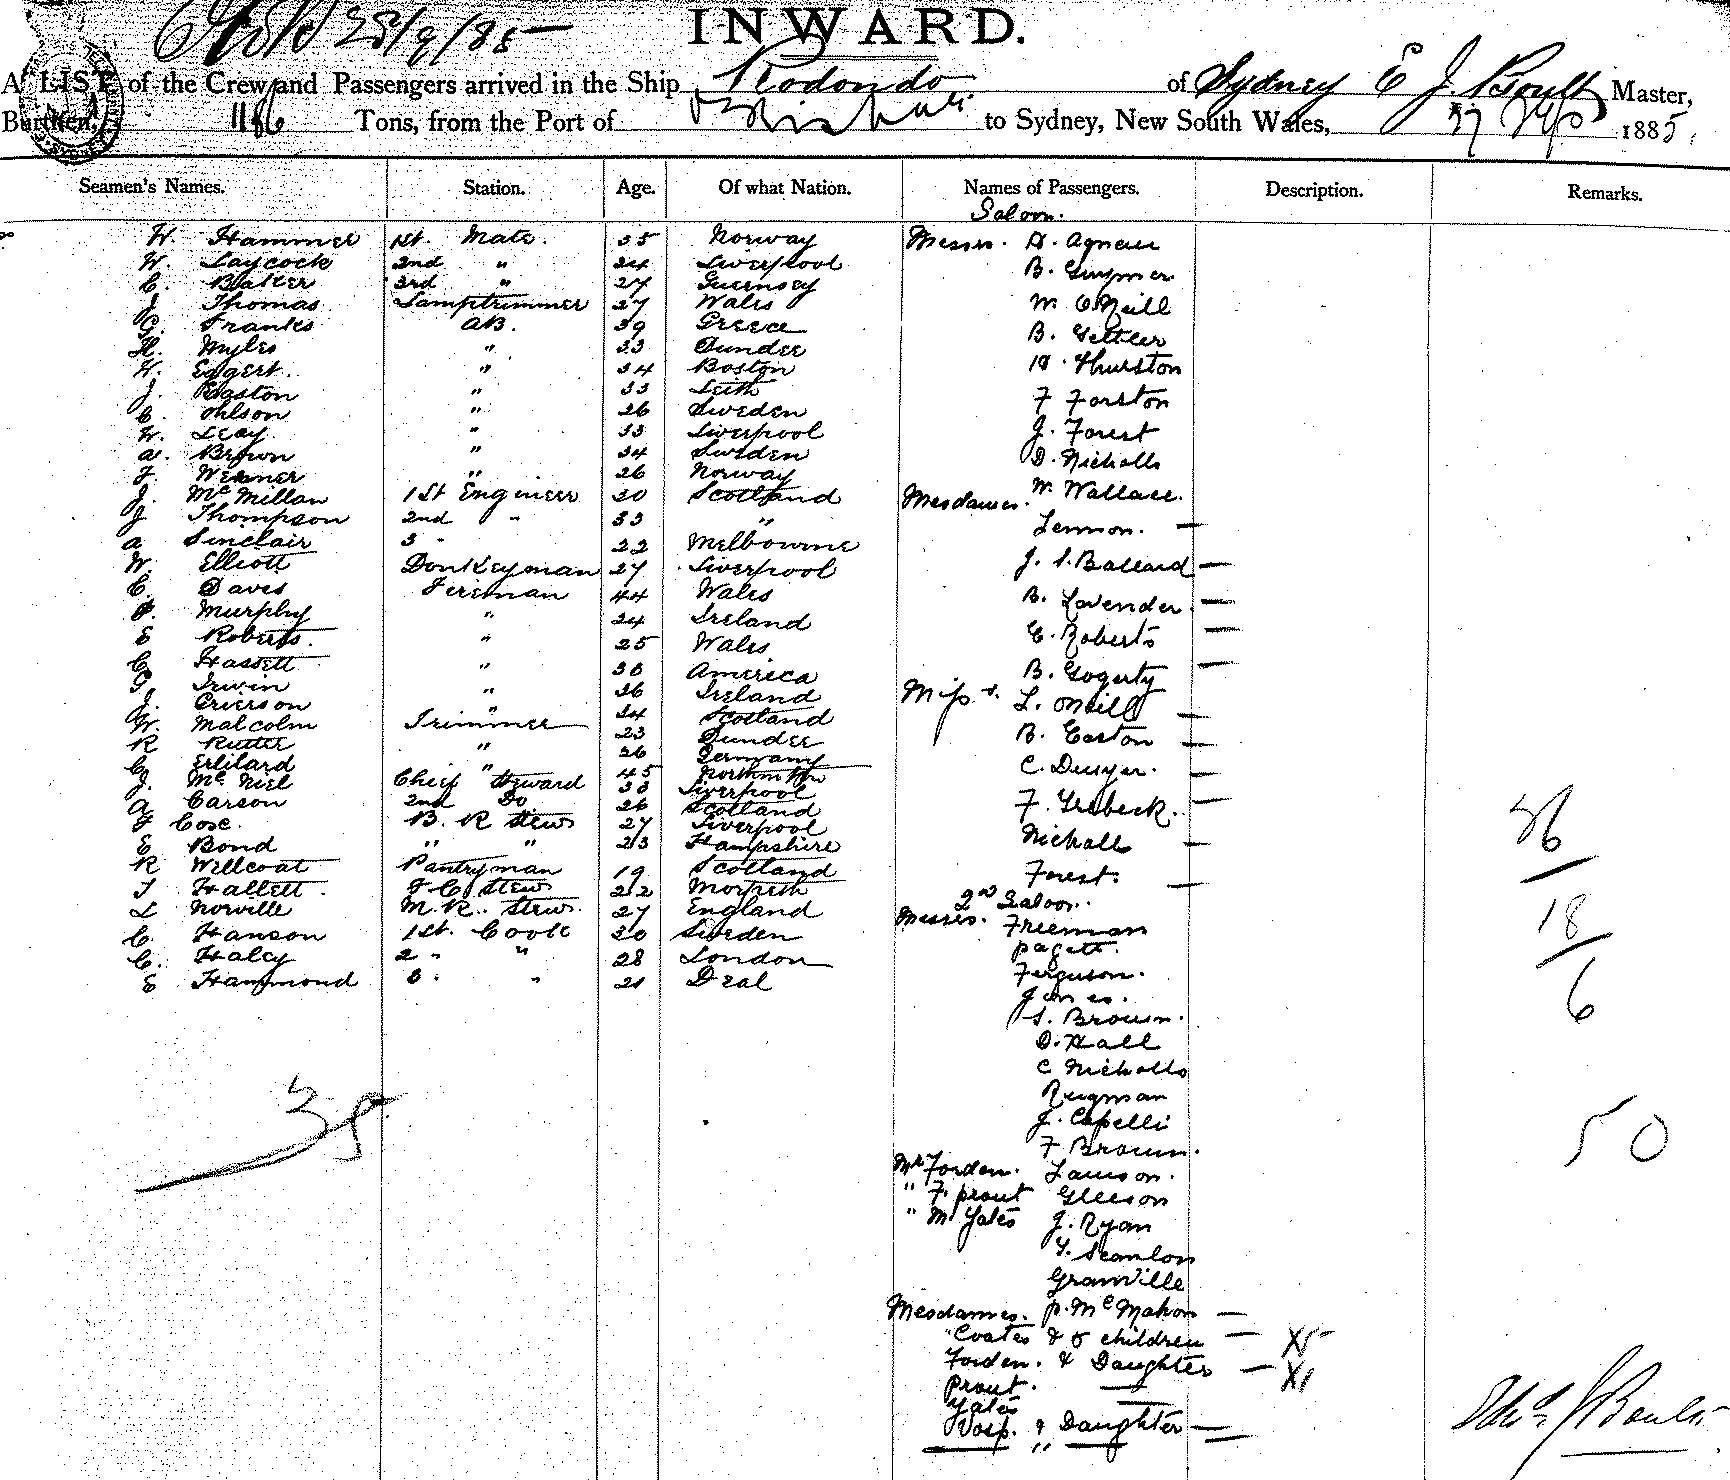 28/9/85
INWARD.
A LIST of the Crew and Passengers arrived in the Ship Rodondo of Sydney E J. Boult Master,
Burthen, 1186 Tons, from the Port of to Sydney, New South Wales, 27 1885.
Seamen's Names. Station. Age. Of what Nation. Names of Passengers. Description. Remarks.
Saloon.
W. Hammer 1st. Mate. 35 Norway Messrs. A. Agnew
W. Laycock 2nd " 24 Liverpool B. Guymer
C. Baker 3rd " 27 Guernsey
J Thomas Lamptrimmer 27 Wales M O'Neill
G. Franks AB. 39 Greece
H. Myles " 33 Dundee B. Gettler
W. Eggert. " 34 Boston H. Thurston
J. Easton " 33 Leith
C. Ohlson " 26 Sweden F Forston
W. Leay " 33 Liverpool J. Forest
A. Brown " 34 Sweden D. Nicholls
F. Werner " 26 Norway
J. McMillan 1st Engineer 30 Scotland Mesdames. W. Wallace.
J Thompson 2nd " 33 " Lennon. —
A Sinclair 3 " 22 Melbourne
W. Elliott Donkeyman 27 Liverpool J. S. Ballard —
C. Daves Fireman 44 Wales B. Lavender. —
Murphy " 24 Ireland
E Roberts. " 25 Wales C. Roberts —
C Hassett " 36 America B. Gogerty —
Irwin " 36 Ireland Miss s. L. O'Neill —
J. Grierson " 34 Scotland
W. Malcolm Trimmer 23 Dundee B. Easton —
R Rutter " 26 Germany
C Erlilard " 45 C. Dwyer. —
J. McNiel Chief Steward 33 Liverpool
A Carson 2nd Do 26 Scotland F. —
F Cose. B. R Stews 27 Liverpool
E Bond " " 23 Hampshire Nicholls —
R Willcoat Pantryman 19 Scotland Forest. —
T Hallett. F. C. Stew 22 Morpeth 2nd Saloon.
L Norville M. R. Stew. 27 England Messrs. Freeman
C. Hanson 1st. Cook 30 Sweden Pagett.
C. Haley 2 " " 28 London Ferguson.
E Hammond 3. " 21 Deal Jones.
S. Brown.
D. Hall
C Nicholls
Rugman
J. Capelli
F Brown.
Mr Forden. Lawson.
" F. Prout Gleeson
" M Yates J. Ryan
T. Scanlon
Granville
Mesdames. P. McMahon —
Coates & 5 children — X5
Forden. & Daughter — X1
Prout. —
Yates —
Vosp. & Daughter —
"
36
26
18
6
50